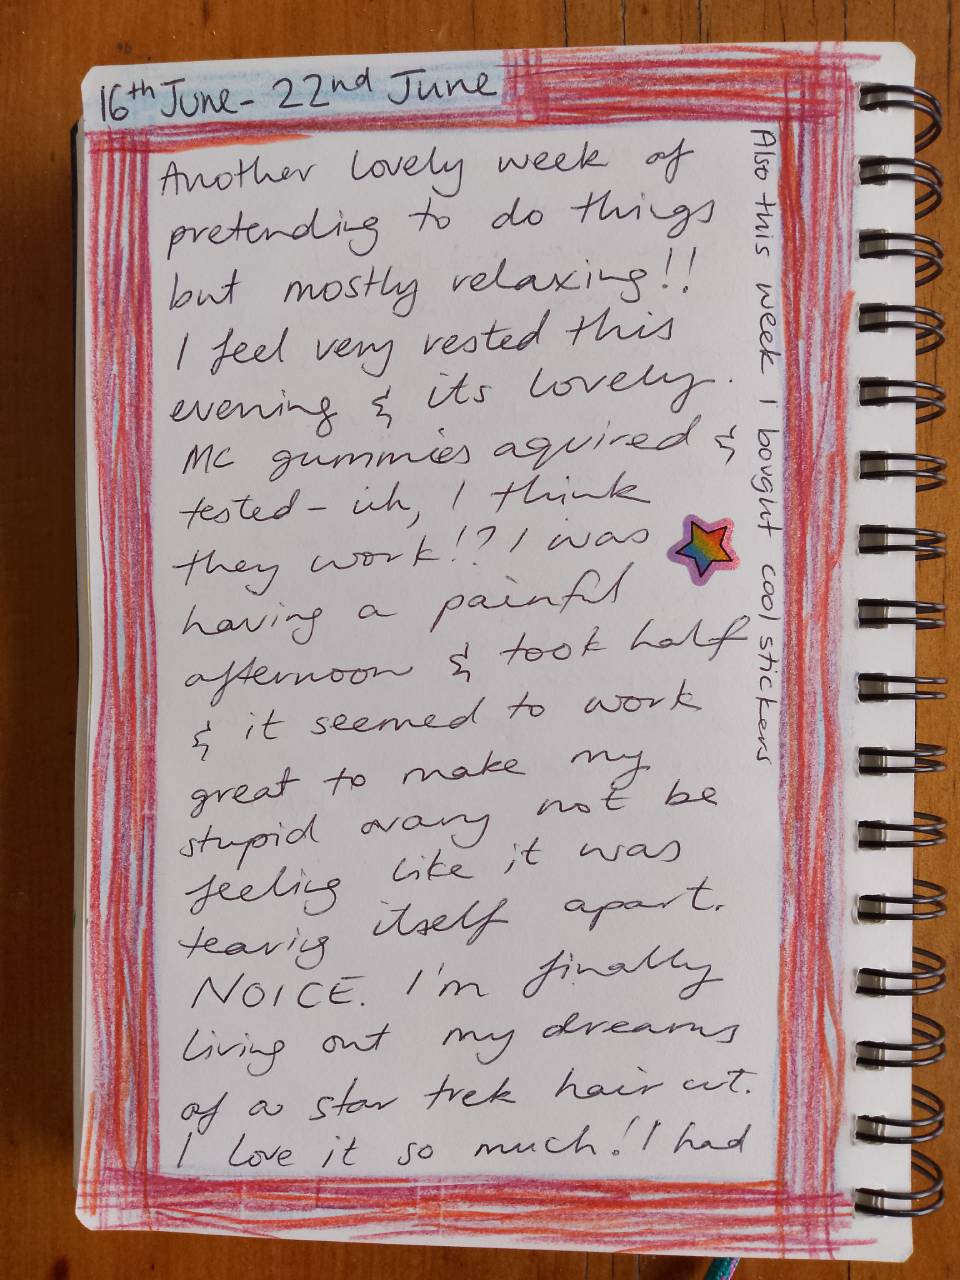 16th June - 22nd June
Another lovely week of
pretending to do things
but mostly relaxing!!
I feel very rested this
evening & its lovely.
MC gummies aquired &
tested - uh, I think
they work!? I was
having a painful
afternoon & took half
& it seemed to work
great to make my
stupid ovary not be
feeling like it was
tearing itself apart.
NOICE. I'm finally
living out my dreams
of a star trek hair cut.
I love it so much! I had
Also this week I bought cool stickers